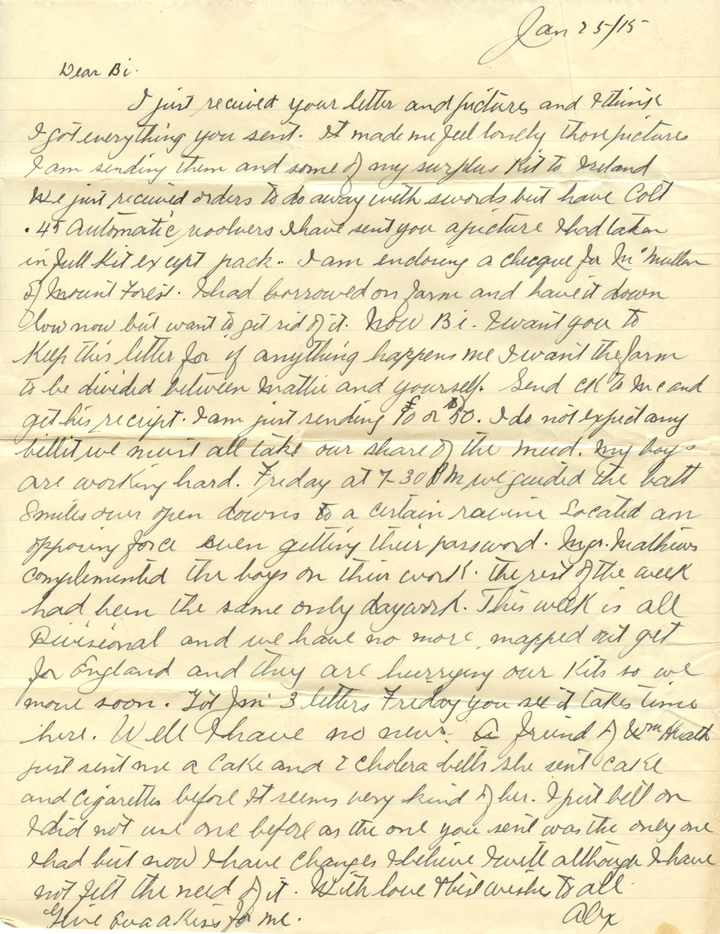 Jan 25/15
Dear Bi.
I just received your letter and pictures and I think
I got everything you sent. It made me feel lonely those pictures
I am sending them and some of my surplus Kit to Ireland
We just received orders to do away with swords but have Colt
.45 Automatic revolvers I have sent you a picture I had taken
in full Kit except pack. I am enclosing a checque for McMullen
of Mount Forest. I had borrowed on farm and have it down
low now but want to get rid of it. Now Bi. I want you to
Keep this letter for if anything happens me I want the farm
to be divided between Mattie and yourself. Send ck to Mc and
get his receipt. I am just sending £10 or $50. I do not expect any
billit we must all take our share of the mud. My boys
are working hard. Friday at 7-30 PM we guided the batt
5 miles over open downs to a certain ravine Located an
opposing force even getting their password. Mjr. Mathews
complemented the boys on their work. the rest of the week
had been the same only daywork. This week is all
Divisional and we have no more mapped out yet
for England and they are hurrying our Kits so we
move soon. Got Jim 3 letters Friday you see it takes time
here. Well I have no news. A friend of Wm Heath
just sent me a cake and 2 cholera belts she sent cake
and cigarettes before It seems very kind of her. I put belt on
I did not use one before as the one you sent was the only one
I had but now I have changes I believe I will although I have
not felt the need of it. With love & best wishes to all.
Give Eva a Kiss for me. Alex